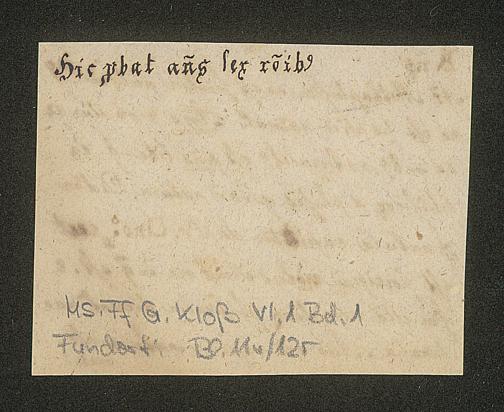 Hic ꝓbat añs sex rõibꝰ
MS. Ff G. Kloß VI, 1 Bd. 1
Fundort: Bl. 11v/12r